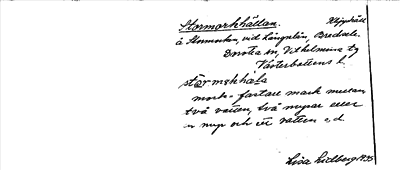 Stormorkhällan. Klipphäll
å Stormorken, vid Långselån, Bredsele.
Dorotea sn, Vilhelmina tg
Västerbottens l.
stormskhäla
mork = fastare mark mellan
två vatten, två nupar eller
en nup och ett vatten o,d
Lisa Lidberg 1935